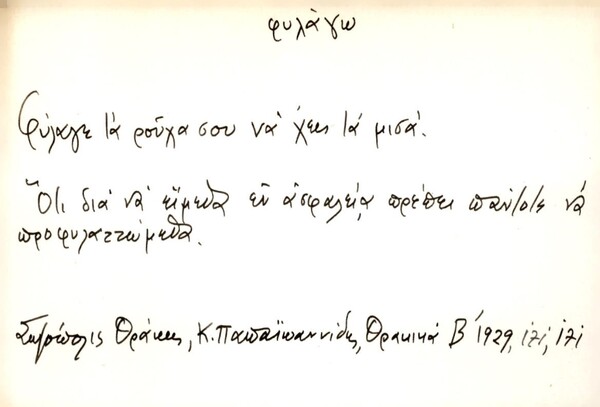 φυλάγω
Φύλαγε τά ροῦχα σου νά ἔχεις τά μισά.
Ὅτι διά νά εἴμεθα ἐν ἀσφαλείᾳ πρέπει πάντοτε νά
προφυλαττώμεθα.
Θράκης, Κ. Παπαϊωαννίδης, Θρακικά Β΄ 1929,